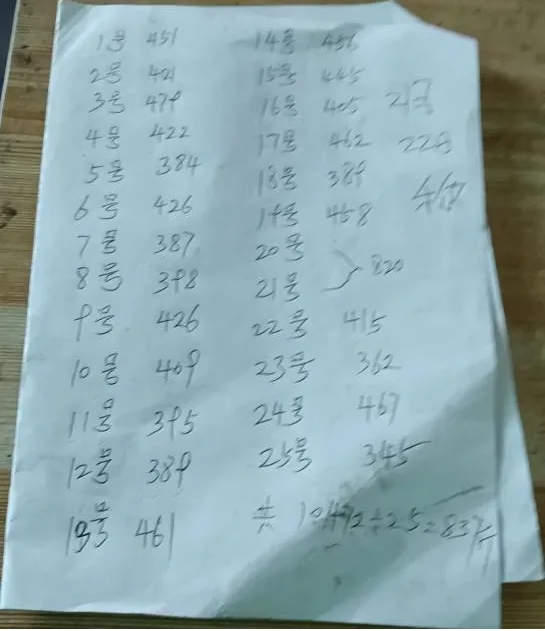 1号 451
2号 421
3号 479
4号 422
5号 384
6号 426
7号 387
8号 398
9号 426
10号 409
11号 395
12号 389
13号 461
14号 456
15号 445
16号 405
17号 462
18号 389
19号 458
20号
21号
820
22号 415
23号 362
24号 467
25号 345
共 ÷25=
21号
22号